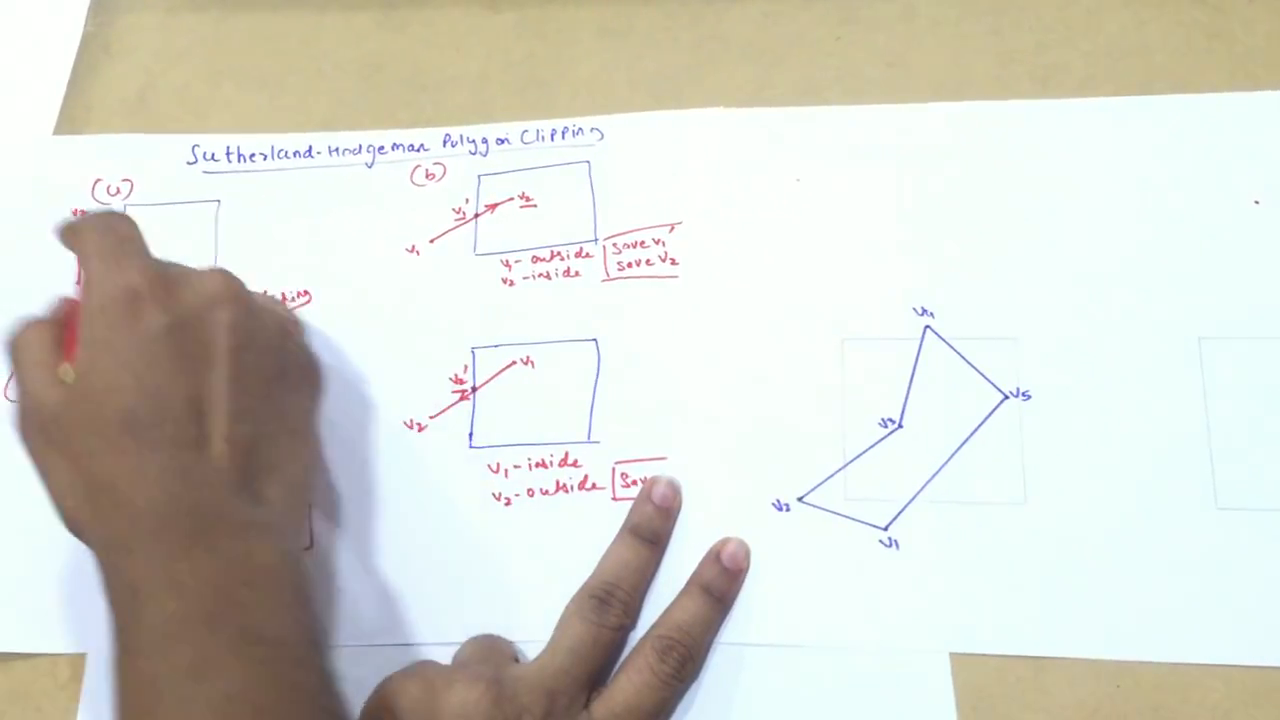 Sutherland-Hodgeman Polygon Clipping
(a)
(b)
v1'
v2
v1
v1- outside
v2-inside
save v1'
save v2
v1
v2'
v2
v1-inside
v2-outside
v4
v5
v3
v2
v1